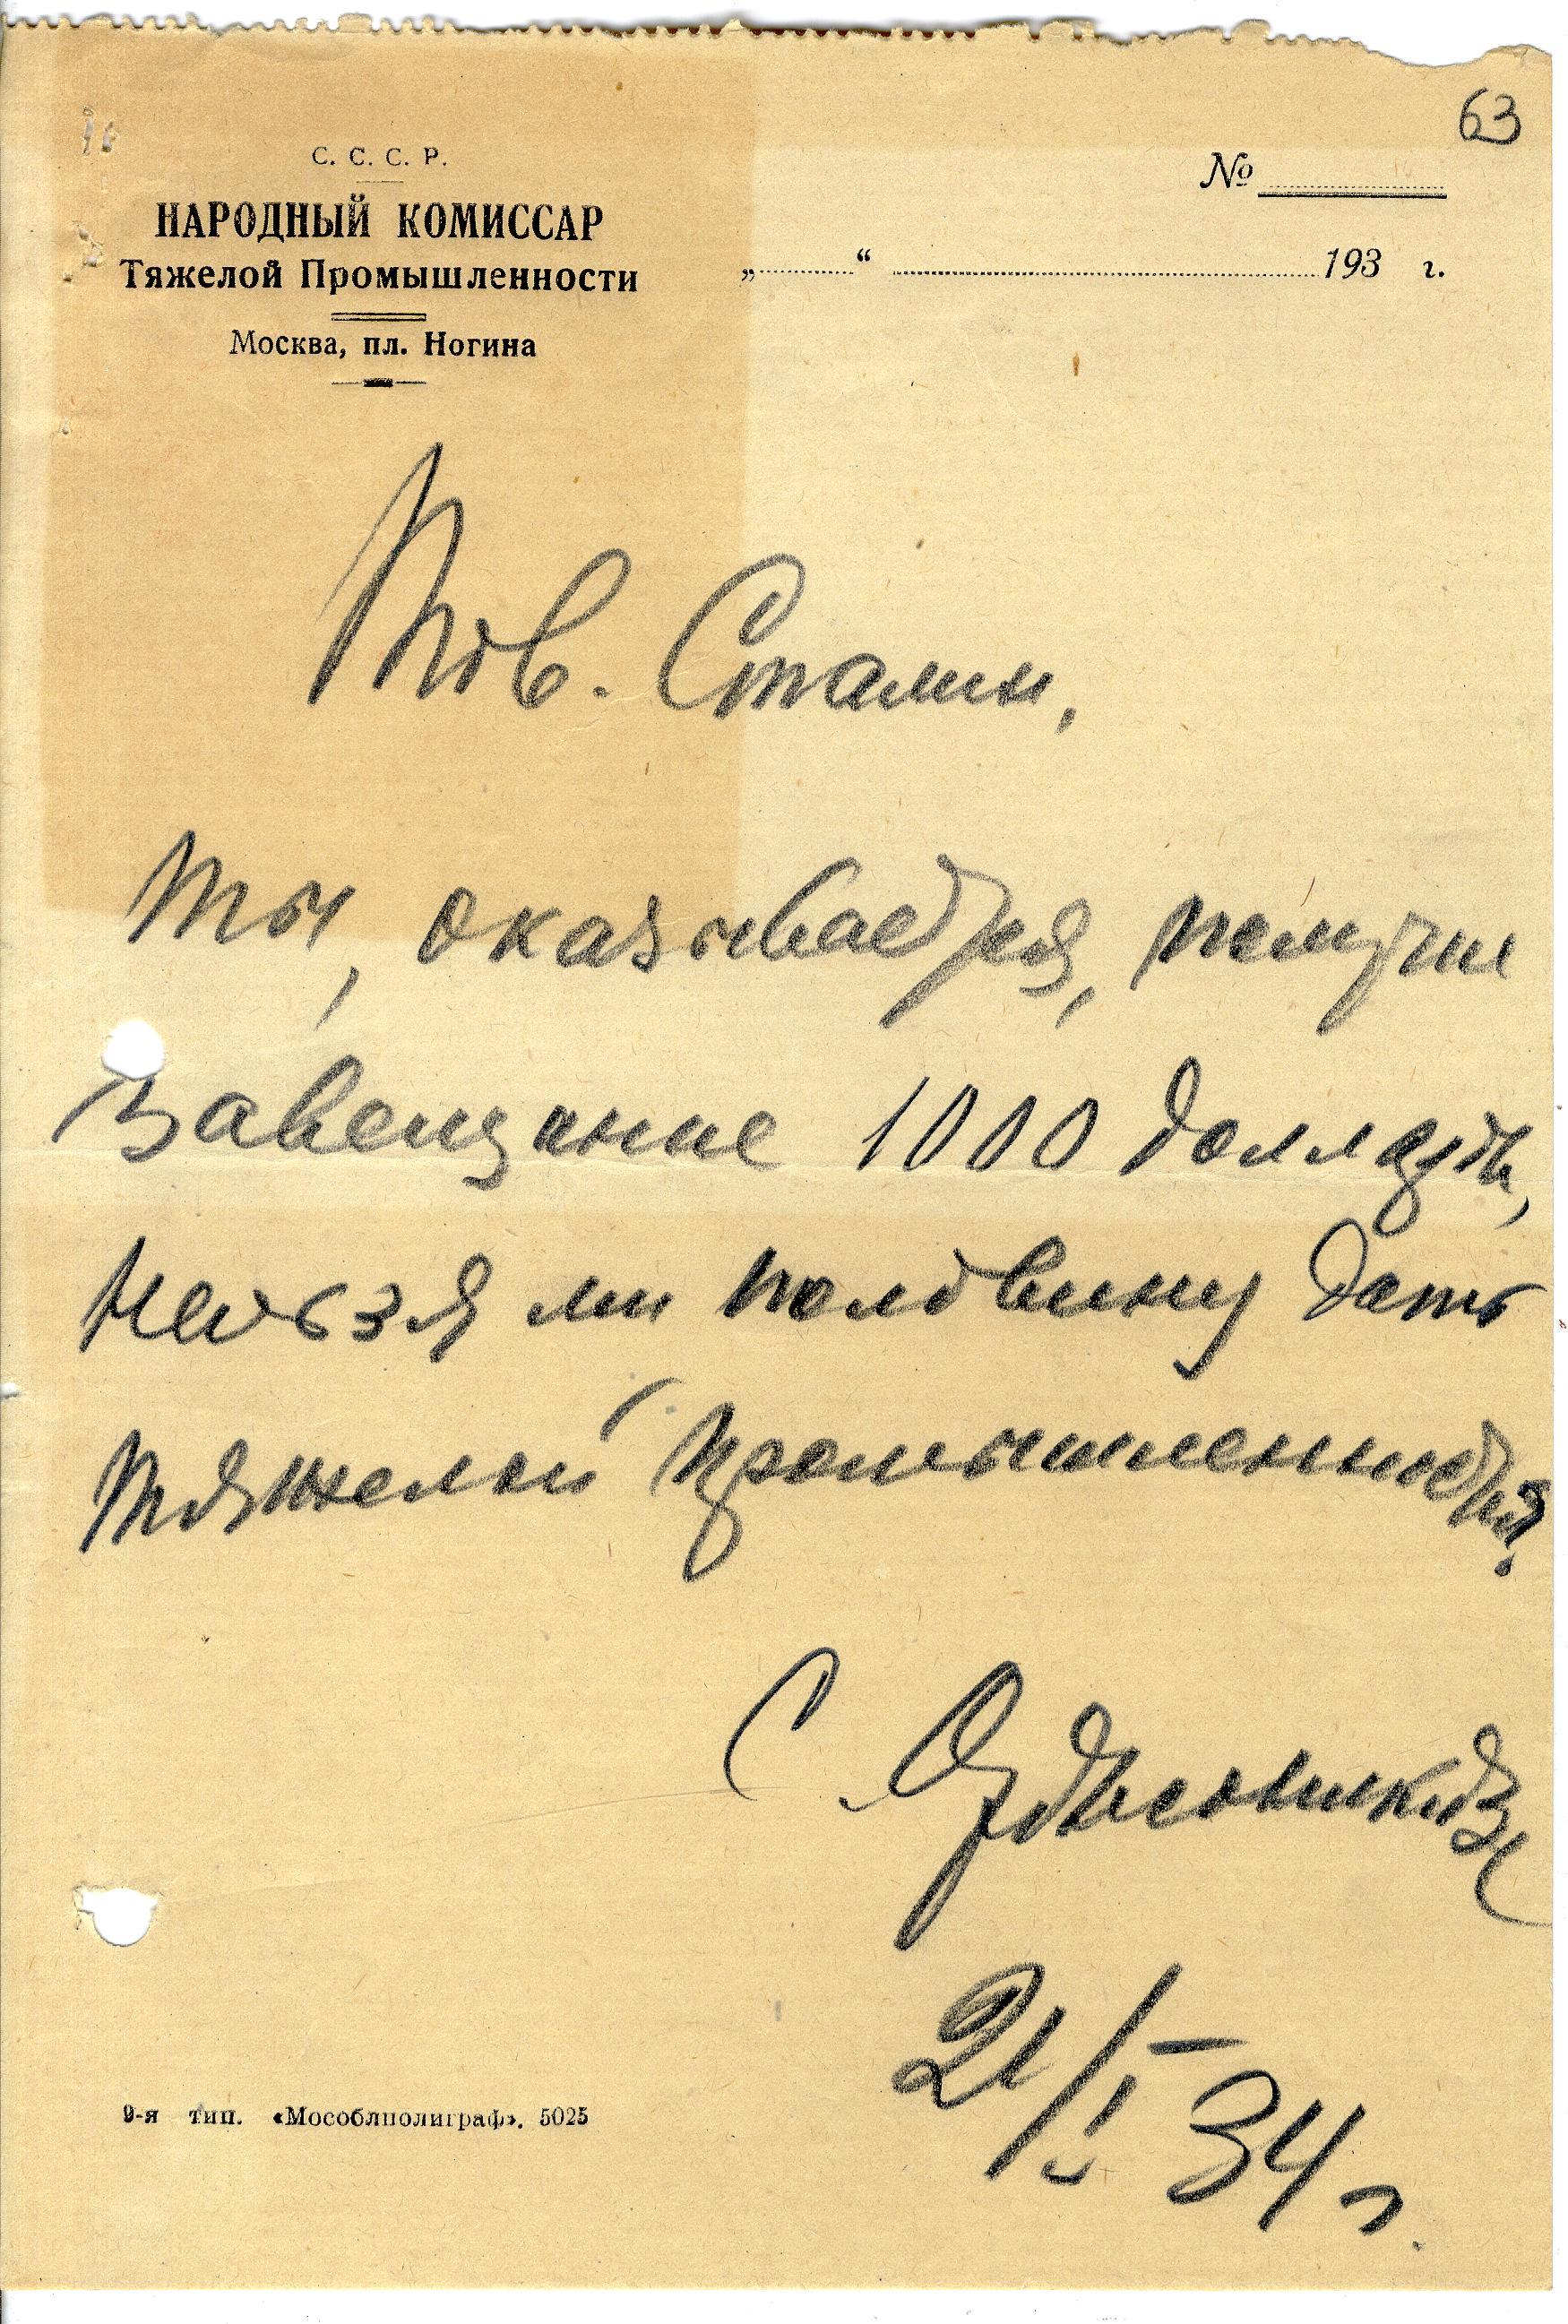 63
С. С. С. Р.
НАРОДНЫЙ КОМИССАР
Тяжелой Промышленности
Москва, пл. Ногина
№
„ “ 193 г.
Тов. Сталин,
Ты, оказывается, получ
Завещание 1000 долларов,
нельзя ли половину дать
тяжелой промышленности?
С. Орджоникидзе
21/I 34 г.
9-я тип. «Мособлполиграф». 5025